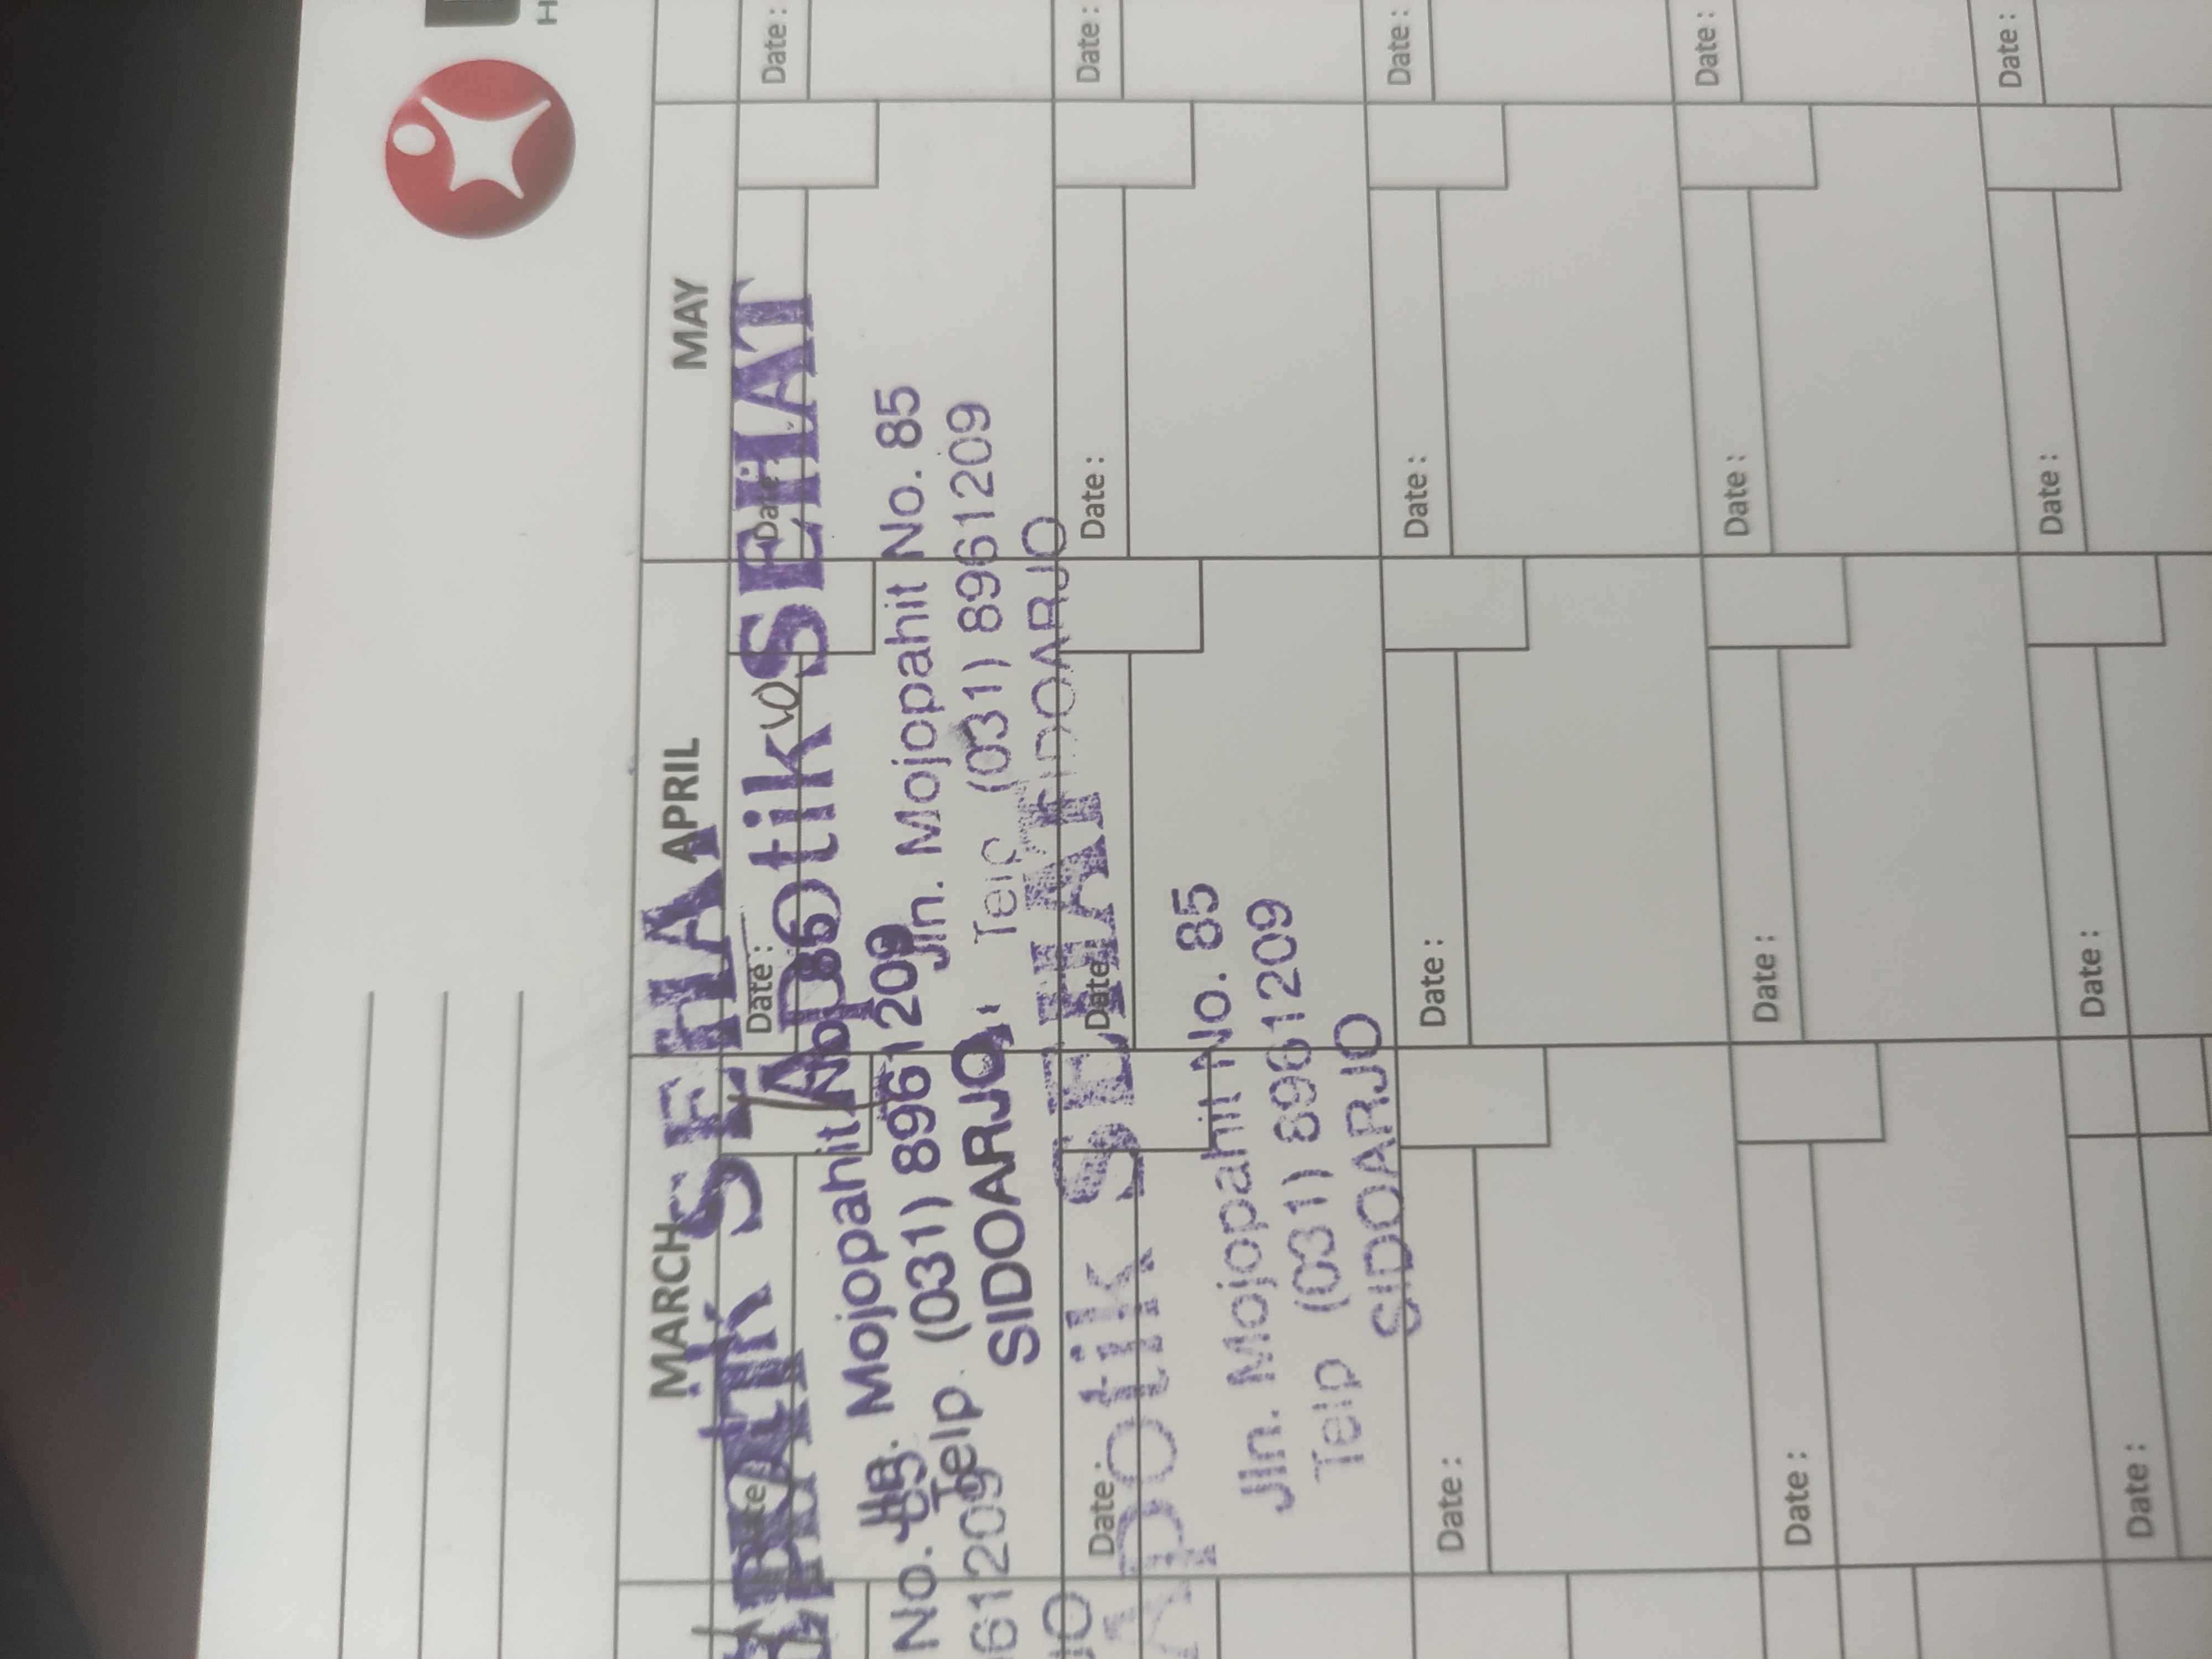 MARCH APRIL MAY
Date : Date : Date :
APotik SEHAT
Jln. Mojopahit No. 85
Telp (031) 8961209
SIDOARJO
SEHA
Mojopahit No. 85
Telp. (031) 8961209
SIDOARJO
No. 85
61209
JO
Date : Date Date : Date :
APotik SEHAT
Jln. Mojopahit No. 85
Telp (031) 8961209
SIDOARJO
Date : Date : Date : Date :
Date : Date : Date : Date :
Date : Date : Date : Date :